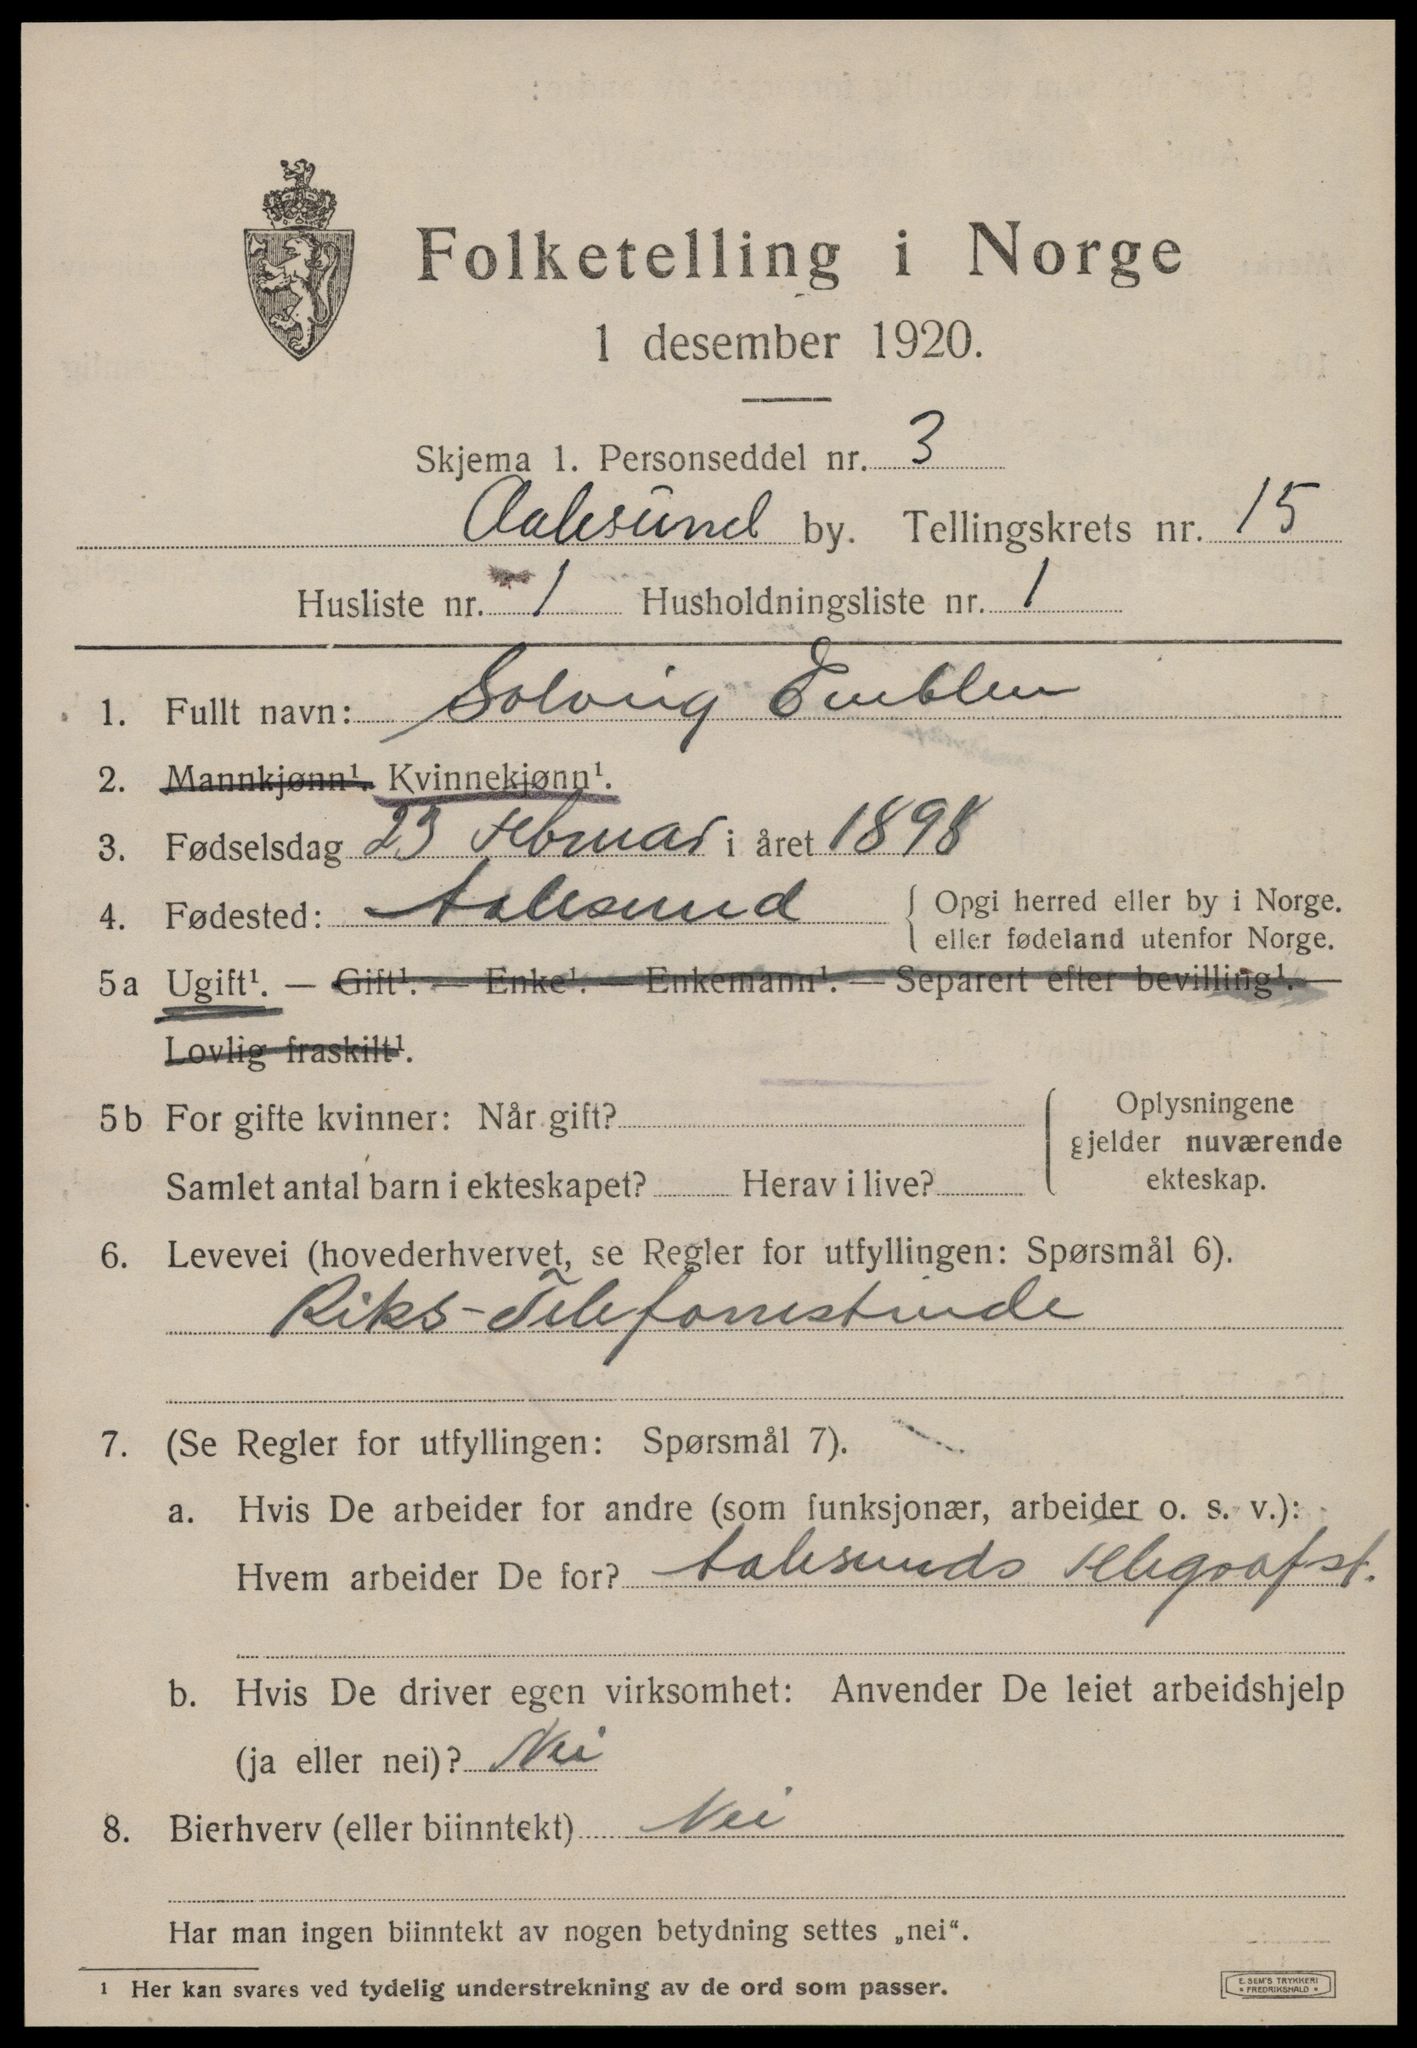 Folketelling i Norge
1 desember 1920.
Skjema 1. Personseddel nr. 3
Aalesund by. Tellingskrets nr. 15
Husliste nr. 1 Husholdningsliste nr. 1
1. Fullt navn: Solvig Emblem
2. Mannkjønn¹. Kvinnekjønn¹.
3. Fødselsdag 23 Februar i året 1898
4. Fødested: Aalesund { Opgi herred eller by i Norge.
eller fødeland utenfor Norge.
5a Ugift¹. — Gift¹. — Enke¹. — Enkemann¹. — Separert efter bevilling¹. —
Lovlig fraskilt¹.
5b For gifte kvinner: Når gift?
Samlet antal barn i ekteskapet? Herav i live?
Oplysningene
gjelder nuværende
ekteskap.
6. Levevei (hovederhvervet, se Regler for utfyllingen: Spørsmål 6).
Riks-Telefonistinde
7. (Se Regler for utfyllingen: Spørsmål 7).
a. Hvis De arbeider for andre (som funksjonær, arbeider o. s. v.):
Hvem arbeider De for? Aalesunds Telegrafst.
b. Hvis De driver egen virksomhet: Anvender De leiet arbeidshjelp
(ja eller nei)? Nei
8. Bierhverv (eller biinntekt) Nei
Har man ingen biinntekt av nogen betydning settes „nei“.
¹ Her kan svares ved tydelig understrekning av de ord som passer.
E. SEM'S TRYKKERI
FREDRIKSHALD